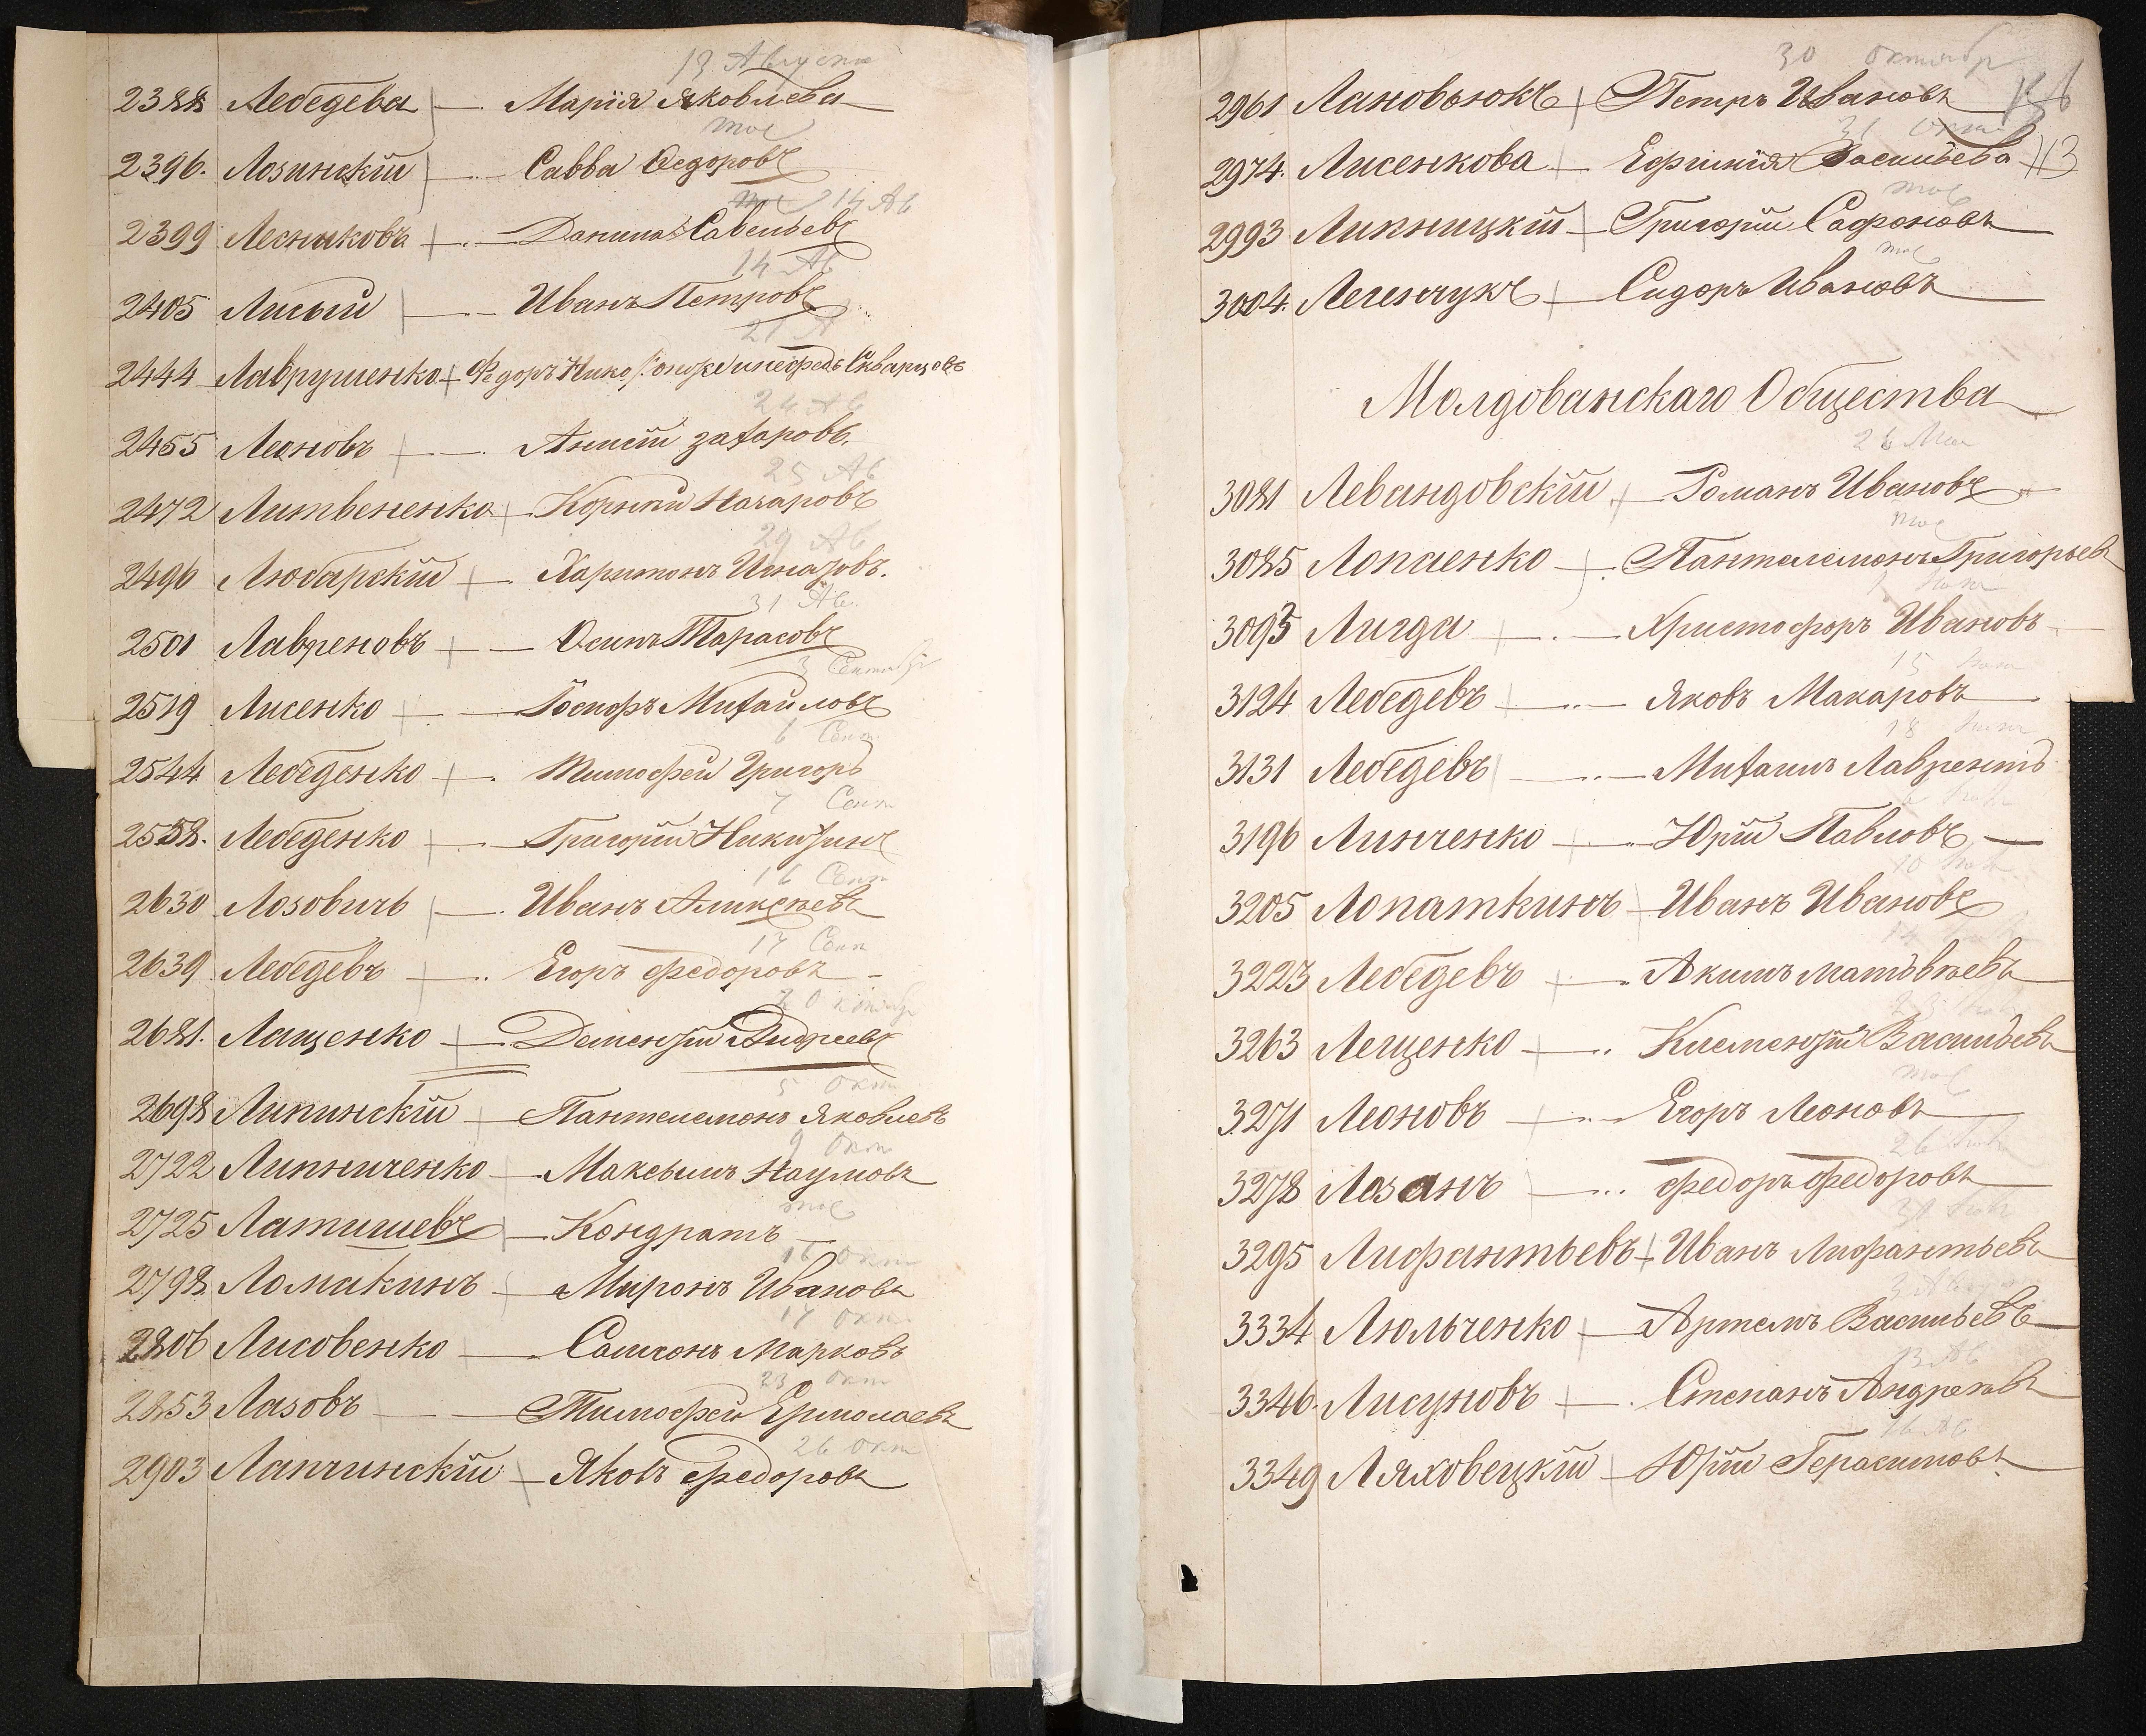 13 Августа
2388 Лебедева — Марія Яковлева
тое
2396. Лозинскій — Савва Ѳедоровъ
тое 14 Ав
2399 Лесниковъ — Данила Савельевъ
14 Ав
2405 Лисый — Иванъ Петровъ
21 А
2444 Лаврушенко — Федоръ Нико Скварцовъ
24 Ав
2455 Леоновъ — Анисій Захаровъ.
25 Ав
2472 Литвененко — Корній Назаровъ
29 Ав
2496 Любарскій — Харитонъ Игнатовъ.
31 Ав.
2501 Лавреновъ — Осипъ Тарасовъ
3 Сентября
2519 Лисенко — Іосифъ Михайловъ
6 Сент.
2544 Лебеденко — Тимофей Григорь
7 Сент
2558. Лебеденко — Григорій Никитинъ
16 Сент
2630 Лозовичъ — Иванъ Алиексѣевъ
17 Сент
2639 Лебедевъ — Егоръ Федоровъ
20
2681. Лащенко — Дементій Андреевъ
5 Окт
2698 Липинскій — Пантелемонъ Яковлевъ
9 Окт
2722 Липниченко — Максымъ Наумовъ
тое
2725 Латышевъ — Кондратъ
16 Окт
2798 Ломакинъ — Миронъ Ивановъ
17 Окт
2806 Лисовенко — Самсонъ Марковъ
23 Окт
2853 Лазовъ — Тимофей Ермолаевъ
26 Окт
2903 Лапчинскій — Яковъ Федоровъ
30 Октябр
2961 Лановьюкъ — Петръ Ивановъ
31 Окт
2974. Лисенкова — Ефимія Васильева 113
тое
2993 Липницкій — Григорій Сафоновъ
тое
3004. Легенчукъ — Сидоръ Ивановъ
Молдованскаго Общества
26 Мая
3081 Левандовскій — Романъ Ивановъ
тое
3085 Лопаенко — Пантелемонъ Григорьевъ
3095 Лигда — Христофоръ Ивановъ
15
3124 Лебедевъ — Яковъ Макаровъ
18
3131 Лебедевъ — Михаилъ Лаврентъ
3196 Линченко — Юрій Павловъ
10
3205 Лопаткинъ — Иванъ Ивановъ
14
3223 Лебедевъ — Акимъ Матвѣевъ
3263 Лещенко — Климентій Васильевъ
тое
3271 Леоновъ — Егоръ Леоновъ
26
3278 Лозанъ — Федоръ Федоровъ
3295 Лифантьевъ — Иванъ Лифантьевъ
3334 Люльченко — Артемъ Васильевъ
13 Ав
3346 Лисуновъ — Степанъ Андреевъ
16 Ав
3349 Ляховецкій — Юрій Герасимовъ